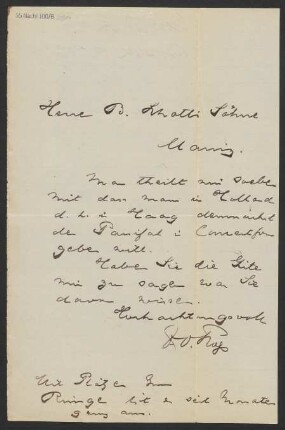 Herrn B. Schott's Söhne
Mainz.
Man theilt mir soeben
mit dass man in Holland
d. h. i Haag demnächst
de Parsifal i Concertform
geben will.
Haben Sie die Güte
mir zu sagen was Sie
davon wissen.
Hochachtungsvoll
Mit
Ringe ist es seit Monaten
ganz aus.